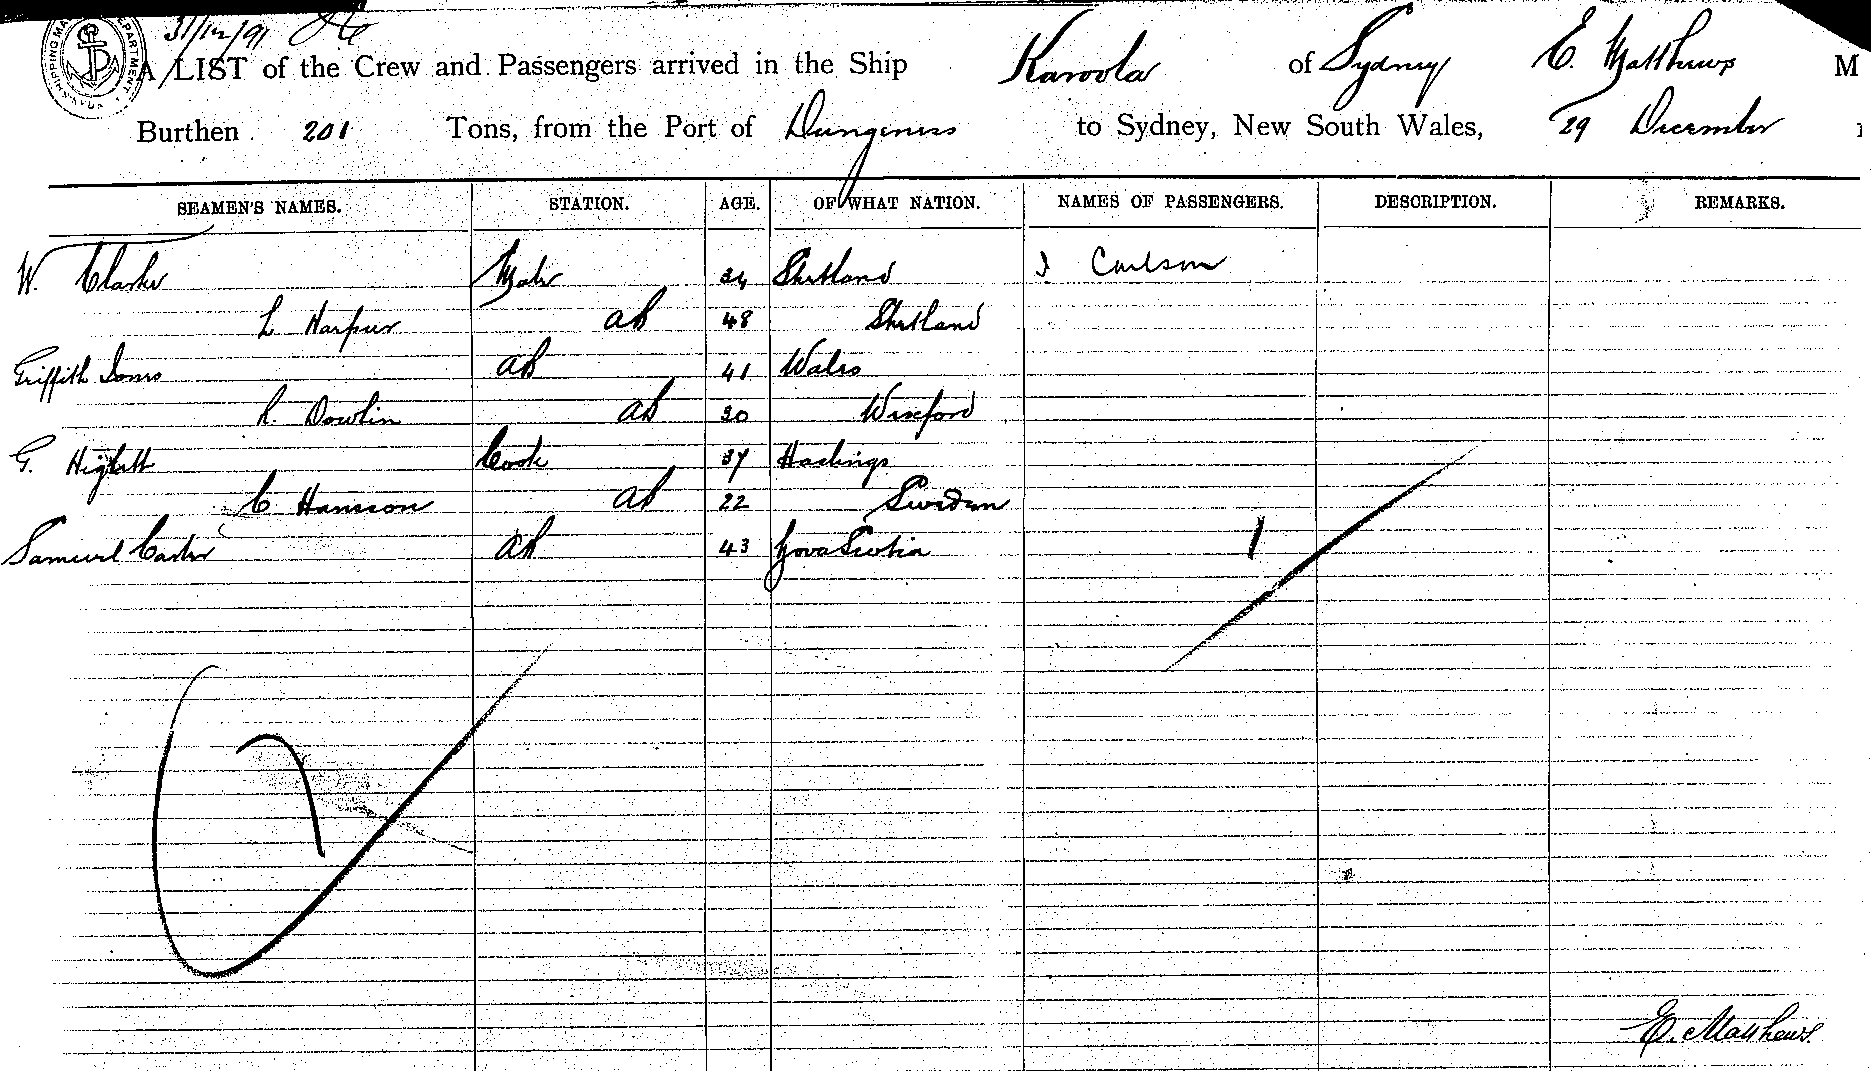 31/12/91
A LIST of the Crew and Passengers arrived in the Ship Karoola of Sydney E. Matthews M
Burthen 201 Tons, from the Port of Dungeness to Sydney, New South Wales, 29 December
SEAMEN'S NAMES. STATION. AGE. OF WHAT NATION. NAMES OF PASSENGERS. DESCRIPTION. REMARKS.
W. Clarke Mate 34 Shetland J Carlson
L Harpur ab 48 Shetland
Griffith Jones ab 41 Wales
R. Dowlin ab 30 Wexford
G. Higlett Cook 37 Hastings
C Hansson ab 22 Sweden
Samuel Carter ab 43 Nova Scotia
1
7
E. Matthews.